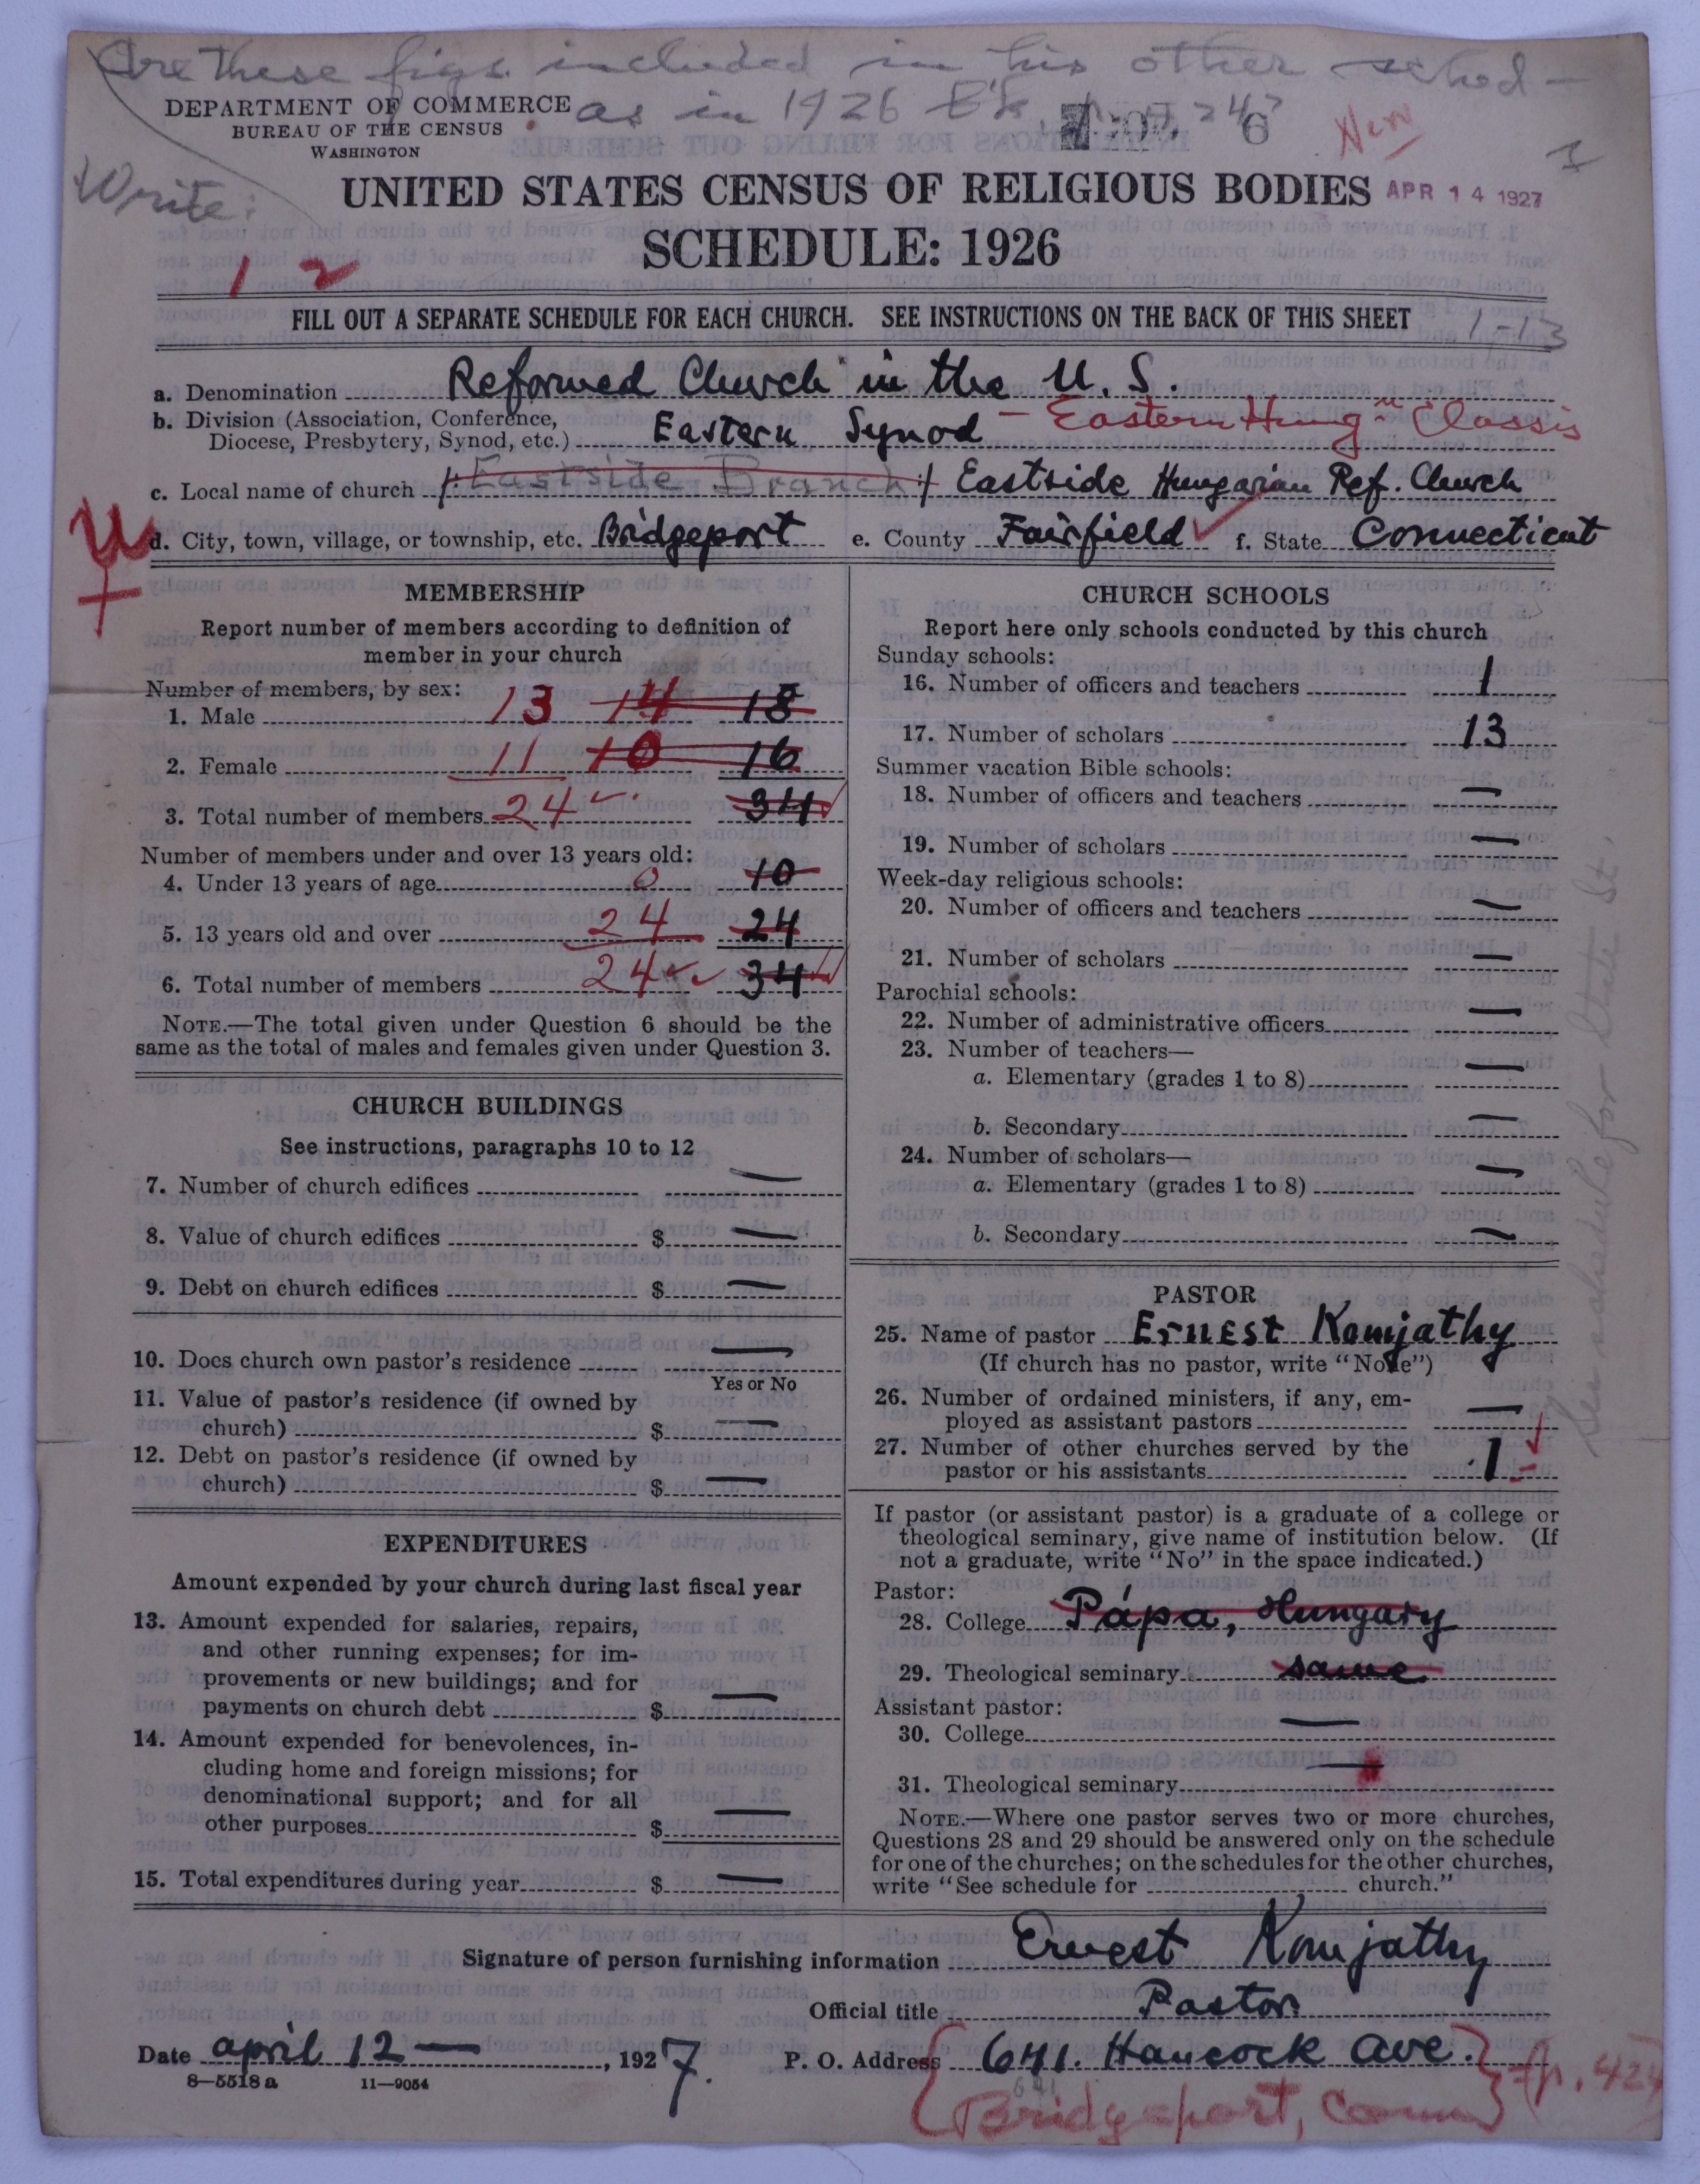 Are these figs. included in his other sched-
as in 1926
DEPARTMENT OF COMMERCE
BUREAU OF THE CENSUS
WASHINGTON
6
New
Write:
UNITED STATES CENSUS OF RELIGIOUS BODIES
APR 14 1927
SCHEDULE: 1926
1 2
FILL OUT A SEPARATE SCHEDULE FOR EACH CHURCH. SEE INSTRUCTIONS ON THE BACK OF THIS SHEET
1-13
a. Denomination Reformed Church in the U. S.
b. Division (Association, Conference,
Diocese, Presbytery, Synod, etc.) Eastern Synod - Eastern Hung'n Classis
c. Local name of church Eastside Branch Eastside Hungarian Ref. Church
d. City, town, village, or township, etc. Bridgeport e. County Fairfield f. State Connecticut
MEMBERSHIP
Report number of members according to definition of
member in your church
Number of members, by sex:
1. Male 13 14 18
2. Female 11 10 16
3. Total number of members 24 34
Number of members under and over 13 years old:
4. Under 13 years of age 0 10
5. 13 years old and over 24 24
6. Total number of members 24 34
NOTE.—The total given under Question 6 should be the
same as the total of males and females given under Question 3.
CHURCH BUILDINGS
See instructions, paragraphs 10 to 12
7. Number of church edifices —
8. Value of church edifices $ —
9. Debt on church edifices $ —
10. Does church own pastor's residence —
Yes or No
11. Value of pastor's residence (if owned by
church) $ —
12. Debt on pastor's residence (if owned by
church) $ —
EXPENDITURES
Amount expended by your church during last fiscal year
13. Amount expended for salaries, repairs,
and other running expenses; for im-
provements or new buildings; and for
payments on church debt $ —
14. Amount expended for benevolences, in-
cluding home and foreign missions; for
denominational support; and for all
other purposes $ —
15. Total expenditures during year $ —
CHURCH SCHOOLS
Report here only schools conducted by this church
Sunday schools:
16. Number of officers and teachers 1
17. Number of scholars 13
Summer vacation Bible schools:
18. Number of officers and teachers —
19. Number of scholars —
Week-day religious schools:
20. Number of officers and teachers —
21. Number of scholars —
Parochial schools:
22. Number of administrative officers —
23. Number of teachers—
a. Elementary (grades 1 to 8) —
b. Secondary —
24. Number of scholars—
a. Elementary (grades 1 to 8) —
b. Secondary —
PASTOR
25. Name of pastor Ernest Komjathy
(If church has no pastor, write "None")
26. Number of ordained ministers, if any, em-
ployed as assistant pastors —
27. Number of other churches served by the
pastor or his assistants 1
If pastor (or assistant pastor) is a graduate of a college or
theological seminary, give name of institution below. (If
not a graduate, write "No" in the space indicated.)
Pastor:
28. College Pápa, Hungary
29. Theological seminary same
Assistant pastor:
30. College —
31. Theological seminary —
NOTE.—Where one pastor serves two or more churches,
Questions 28 and 29 should be answered only on the schedule
for one of the churches; on the schedules for the other churches,
write "See schedule for church."
See schedule for State St.
Signature of person furnishing information Ernest Komjathy
Official title Pastor
Date april 12 —, 1927. P. O. Address 641. Hancock ave.
8—5518 a 11—9054
Bridgeport, Conn p. 424